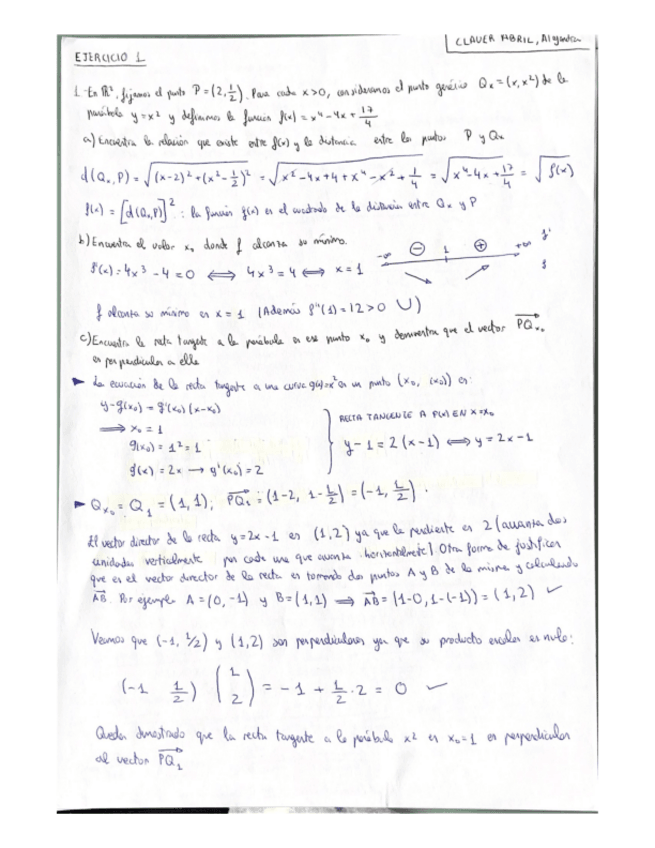 CLAVER ABRIL, Alejandro
EJERCICIO 1
1.-En ℝ², fijamos el punto P=(2, 1/2). Para cada x>0, consideramos el punto genérico Qₓ=(x,x²) de la
parábola y=x² y definimos la función f(x)=x⁴-4x+17/4
a) Encuentra la relación que existe entre f(x) y la distancia entre los puntos P y Qₓ
d(Qₓ,P)=√((x-2)²+(x²-1/2)²) = √(x²-4x+4+x⁴-x²+1/4) = √(x⁴-4x+17/4) = √f(x)
f(x)=[d(Qₓ,P)]² : la función f(x) es el cuadrado de la distancia entre Qₓ y P
b) Encuentra el valor x₀ donde f alcanza su mínimo.
-∞ ⊖ 1 ⊕ +∞ f'
f'(x)=4x³-4=0 ⟺ 4x³=4 ⟺ x=1
f
f alcanza su mínimo en x=1 (Además f''(1)=12>0 ∪)
c) Encuentra la recta tangente a la parábola en ese punto x₀ y demuestra que el vector PQₓ₀
es perpendicular a ella
► La ecuación de la recta tangente a una curva g(x)=x² en un punto (x₀, (x₀)) es:
y-g(x₀)=g'(x₀)(x-x₀)
⟹ x₀=1
g(x₀)=1²=1
g'(x)=2x → g'(x₀)=2
RECTA TANGENTE A P(x) EN X=X₀
y-1=2(x-1) ⟺ y=2x-1
► Qₓ₀=Q₁=(1,1); PQ₁=(1-2, 1-1/2)=(-1, 1/2).
El vector director de la recta y=2x-1 es (1,2) ya que la pendiente es 2 (avanza dos
unidades verticalmente por cada una que avanza horizontalmente). Otra forma de justificar
que es el vector director de la recta es tomando dos puntos A y B de la misma y calculando
AB. Por ejemplo A=(0,-1) y B=(1,1) ⟹ AB=(1-0,1-(-1))=(1,2) ✓
Veamos que (-1, 1/2) y (1,2) son perpendiculares ya que su producto escalar es nulo:
(-1 1/2) (1 2) = -1 + 1/2·2 = 0 ✓
Queda demostrado que la recta tangente a la parábola x² en x₀=1 es perpendicular
al vector PQ₁